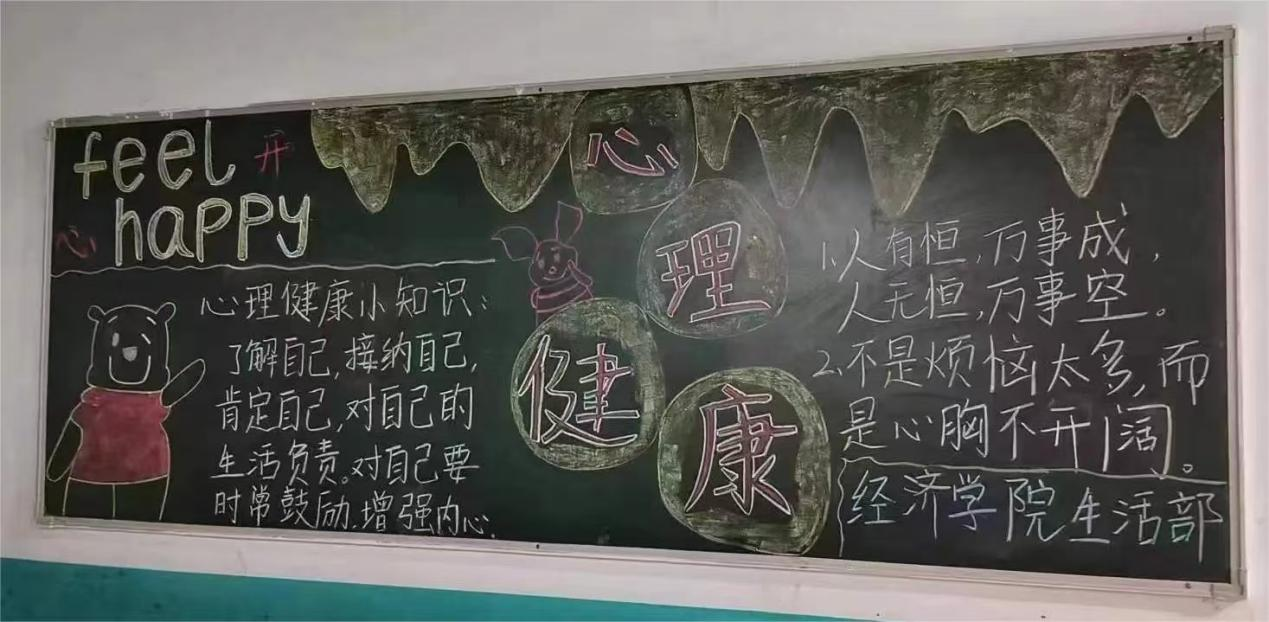 feel 开
心 happy
心理健康小知识:
了解自己,接纳自己,
肯定自己,对自己的
生活负责。对自己要
时常鼓励,增强内心.
心
理
健
康
1.人有恒,万事成,
人无恒,万事空。
2.不是烦恼太多,而
是心胸不开阔。
经济学院生活部